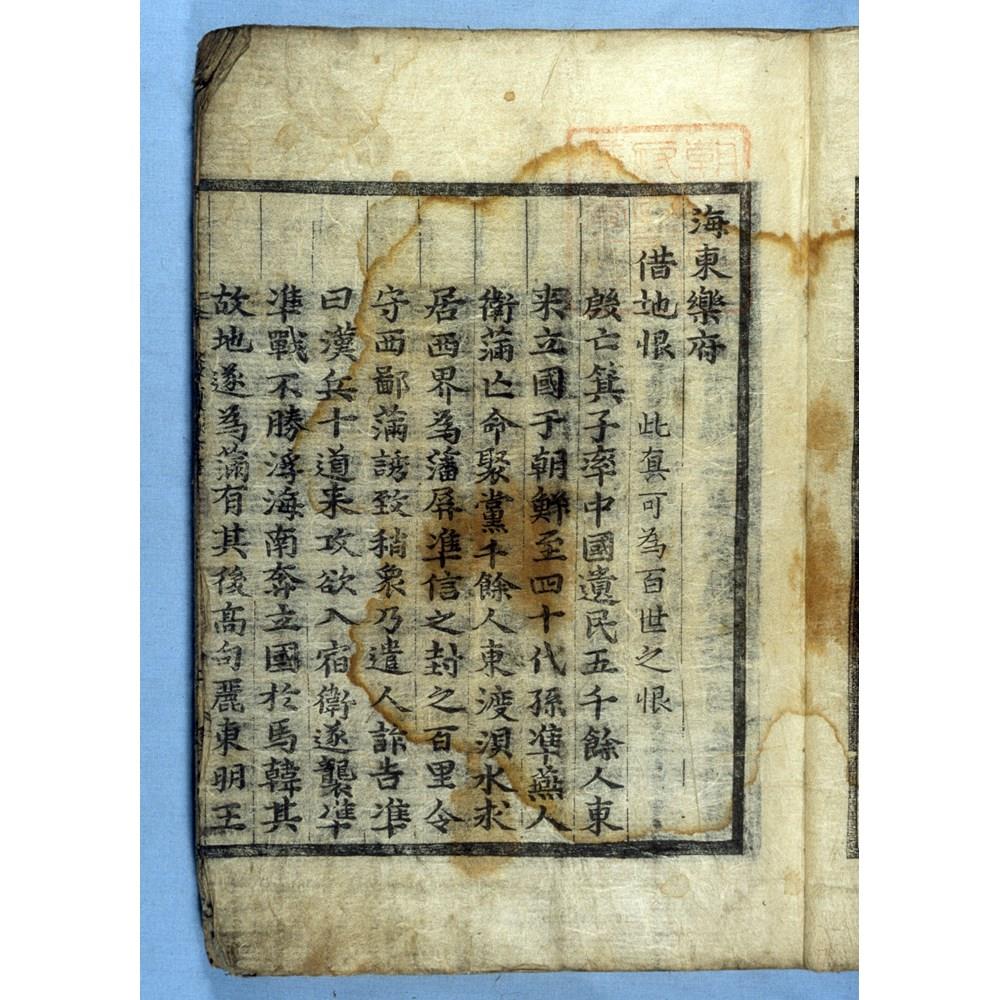 海東樂府
借地恨 此真可為百世之恨
殷亡箕子率中國遺民五千餘人東
来立國于朝鮮至四十代孫準燕人
衛滿亡命聚黨千餘人東渡浿水求
居西界為藩屏準信之封之百里令
守西鄙滿誘致稍衆乃遣人詐告準
曰漢兵十道来攻欲入宿衛遂襲準
準戰不勝浮海南奔立國於馬韓其
故地遂為滿有其後高句麗東明王